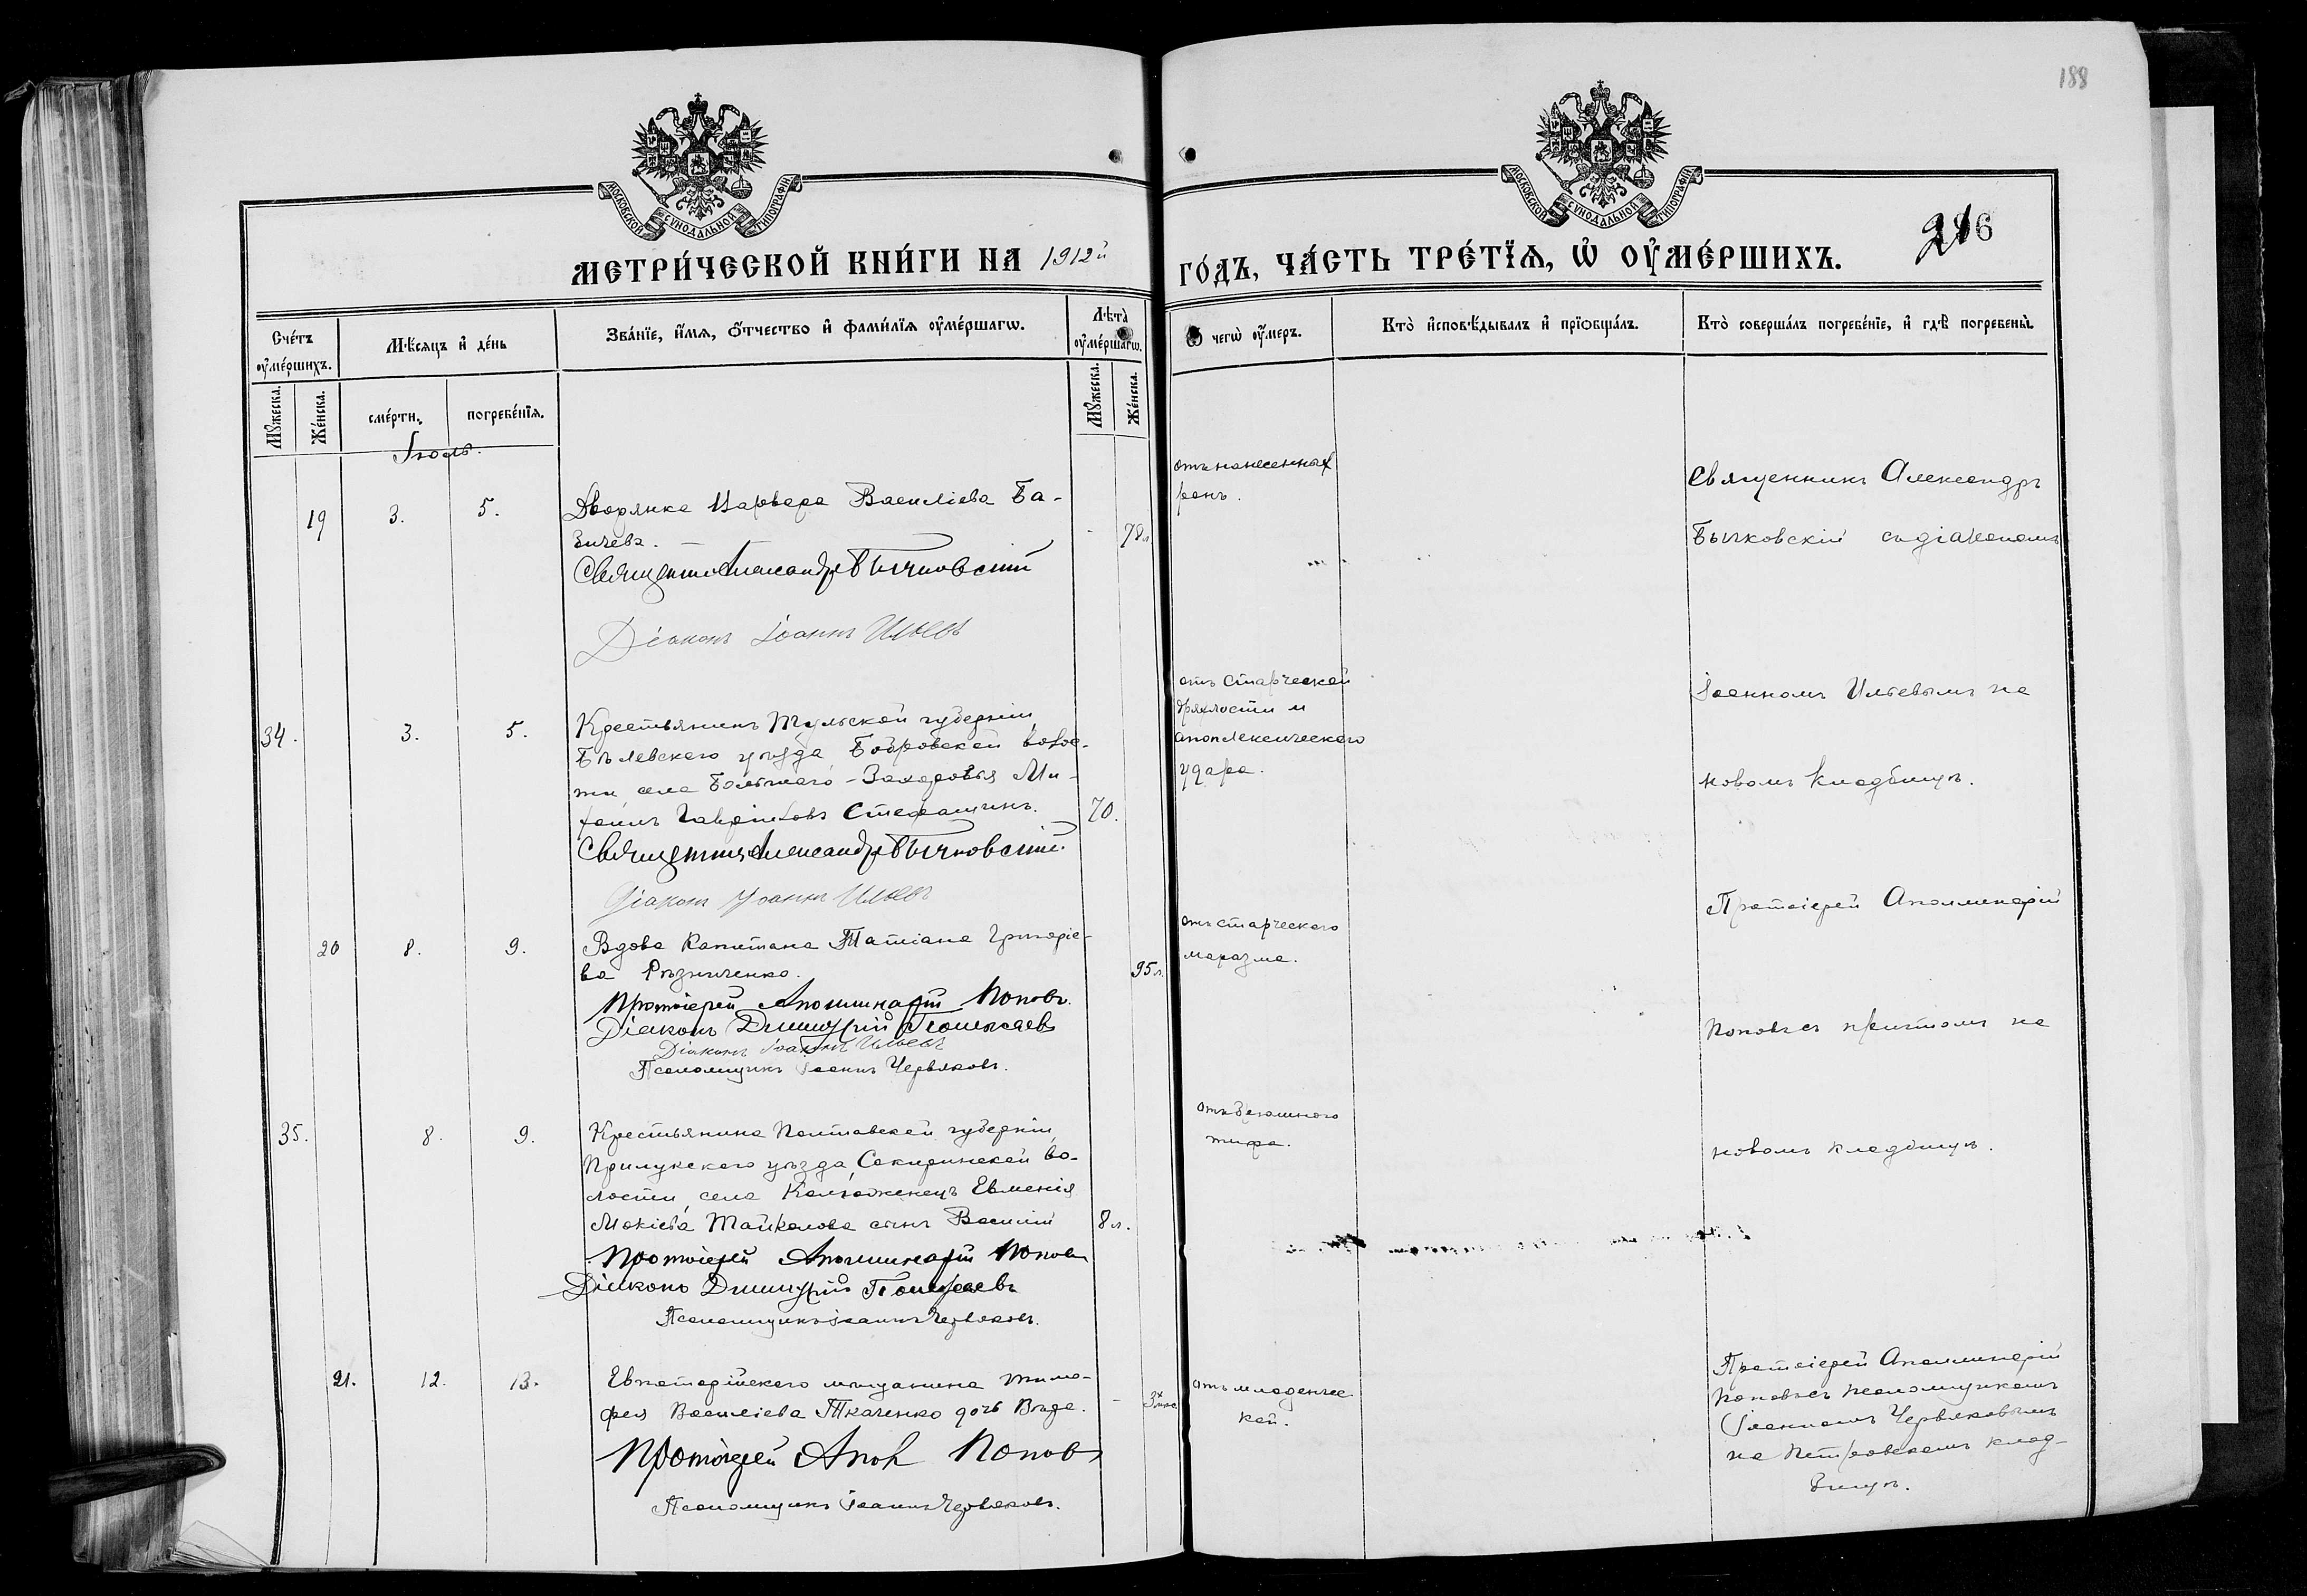 188
МОСКОВСКОЙ СѴНОДАЛЬНОЙ ТИПОГРАФІИ
МОСКОВСКОЙ СѴНОДАЛЬНОЙ ТИПОГРАФІИ
МЕТРИ́ЧЕСКОЙ КНИ́ГИ НА 1912й
ГО́ДЪ, ЧА́СТЬ ТРЕ́ТЇѦ, Ѡ҆ ОУ҆МЕ́РШИХЪ.
Сче́тъ оу҆ме́ршихъ.
Мѣ́сяцъ и҆ де́нь
Зва́нїе, и҆́мѧ, ѻ҆́тчество и҆ фами́лїѧ оу҆ме́ршагѡ.
Лѣта̀ оу҆ме́ршагѡ.
Ѿ чегѡ̀ оу҆́меръ.
Кто̀ и҆сповѣ́дывалъ и҆ прїѻбща́лъ.
Кто̀ соверша́лъ погребе́нїе, и҆ гдѣ̀ погребены̀.
Мꙋ́жеска.
Же́нска.
сме́рти.
погребе́нїѧ.
Мꙋ́жеска.
Же́нска.
Іюль.
19 3. 5. Дворянка Варвара Василіева Ба-
зичева. 78 л
Священникъ Александръ Бычковскій
Діаконъ Іоаннъ Ильевъ
отъ нанесенныхъ
ранъ.
Священникъ Александръ
Бычковскій съ діакономъ
34. 3. 5. Крестьянинъ Тульской губерніи
Бѣлевскаго уѣзда Бобровской волос-
ти, села Большаго-Захаровья Ми-
хаилъ Гавриловъ Стефашинъ. 70.
Священникъ Александръ Бычковскій
Діаконъ Іоаннъ Ильевъ
отъ старческой
дряхлости и
апоплексическаго
удара.
Іоанномъ Ильевымъ на
новомъ кладбищѣ.
20 8. 9. Вдова Капитана Татіана Григоріе-
ва Рѣзниченко. 95 л.
Протоіерей Аполлинарій Поповъ.
Діаконъ Димитрій
Діаконъ Іоаннъ Ильевъ
Псаломщикъ Іоаннъ Червяковъ.
отъ старческаго
маразма.
Протоіерей Аполлинарій
Поповъ съ причтомъ на
35. 8. 9. Крестьянина Полтавской губерніи
Прилукскаго уѣзда, Сокиринской во-
лости, села Евменія
Мокіева сынъ Василій 8 л.
Протоіерей Аполлинарій Поповъ
Діаконъ Димитрій
Псаломщикъ Іоаннъ Червяковъ.
отъ брюшного
тифа.
новомъ кладбищѣ.
21. 12. 13. Евпаторійскаго мѣщанина Тимо-
фея Василіева Ткаченко дочь Вѣра. 3х мѣс
Протоіерей Апол Поповъ
Псаломщикъ Іоаннъ Червяковъ.
отъ младенчес
кой.
Протоіерей Аполлинарій
Поповъ съ псаломщикомъ
Іоанномъ Червяковымъ
на Петровскомъ клад-
бищѣ.